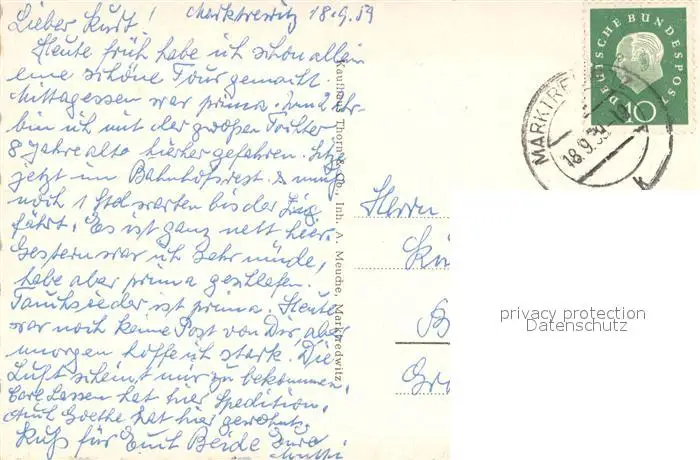 Lieber Kurt! Marktredwitz 18.9.59
Heute früh habe ich schon allein
eine schöne Tour gemacht.
Mittagessen war prima. Um 2 Uhr
bin ich mit der großen Tochter
8 Jahre alt hierher gefahren. Sitze
jetzt im Bahnhofsrest. & muß
noch 1 Std warten bis der Zug
fährt. Es ist ganz nett hier.
Gestern war ich sehr müde,
habe aber prima geschlafen.
Tauchsieder ist prima. Heute
war noch keine Post von Dir, aber
morgen hoffe ich stark. Die
Luft scheint mir zu bekommen.
Carl Lassen hat hier Spedition.
Auch Goethe hat hier gewohnt.
Kuß für Euch Beide Eure
Mutti
Kaufhaus Thorn & Co., Inh. A. Meuche, Marktredwitz
DEUTSCHE BUNDESPOST
10
18.9.59
Herrn
privacy protection
Datenschutz